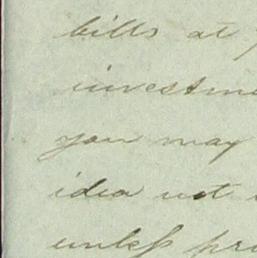 bills at
investme
you may
idea not
unless pr